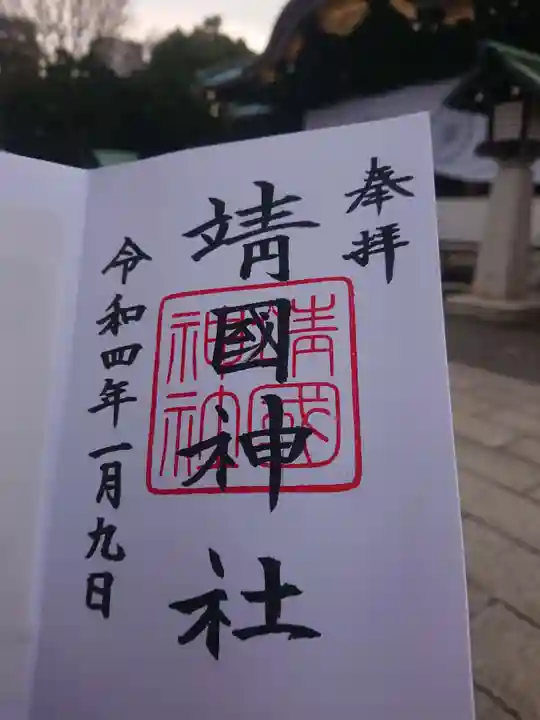 奉拝
靖國神社
靖國
神社
令和四年一月九日